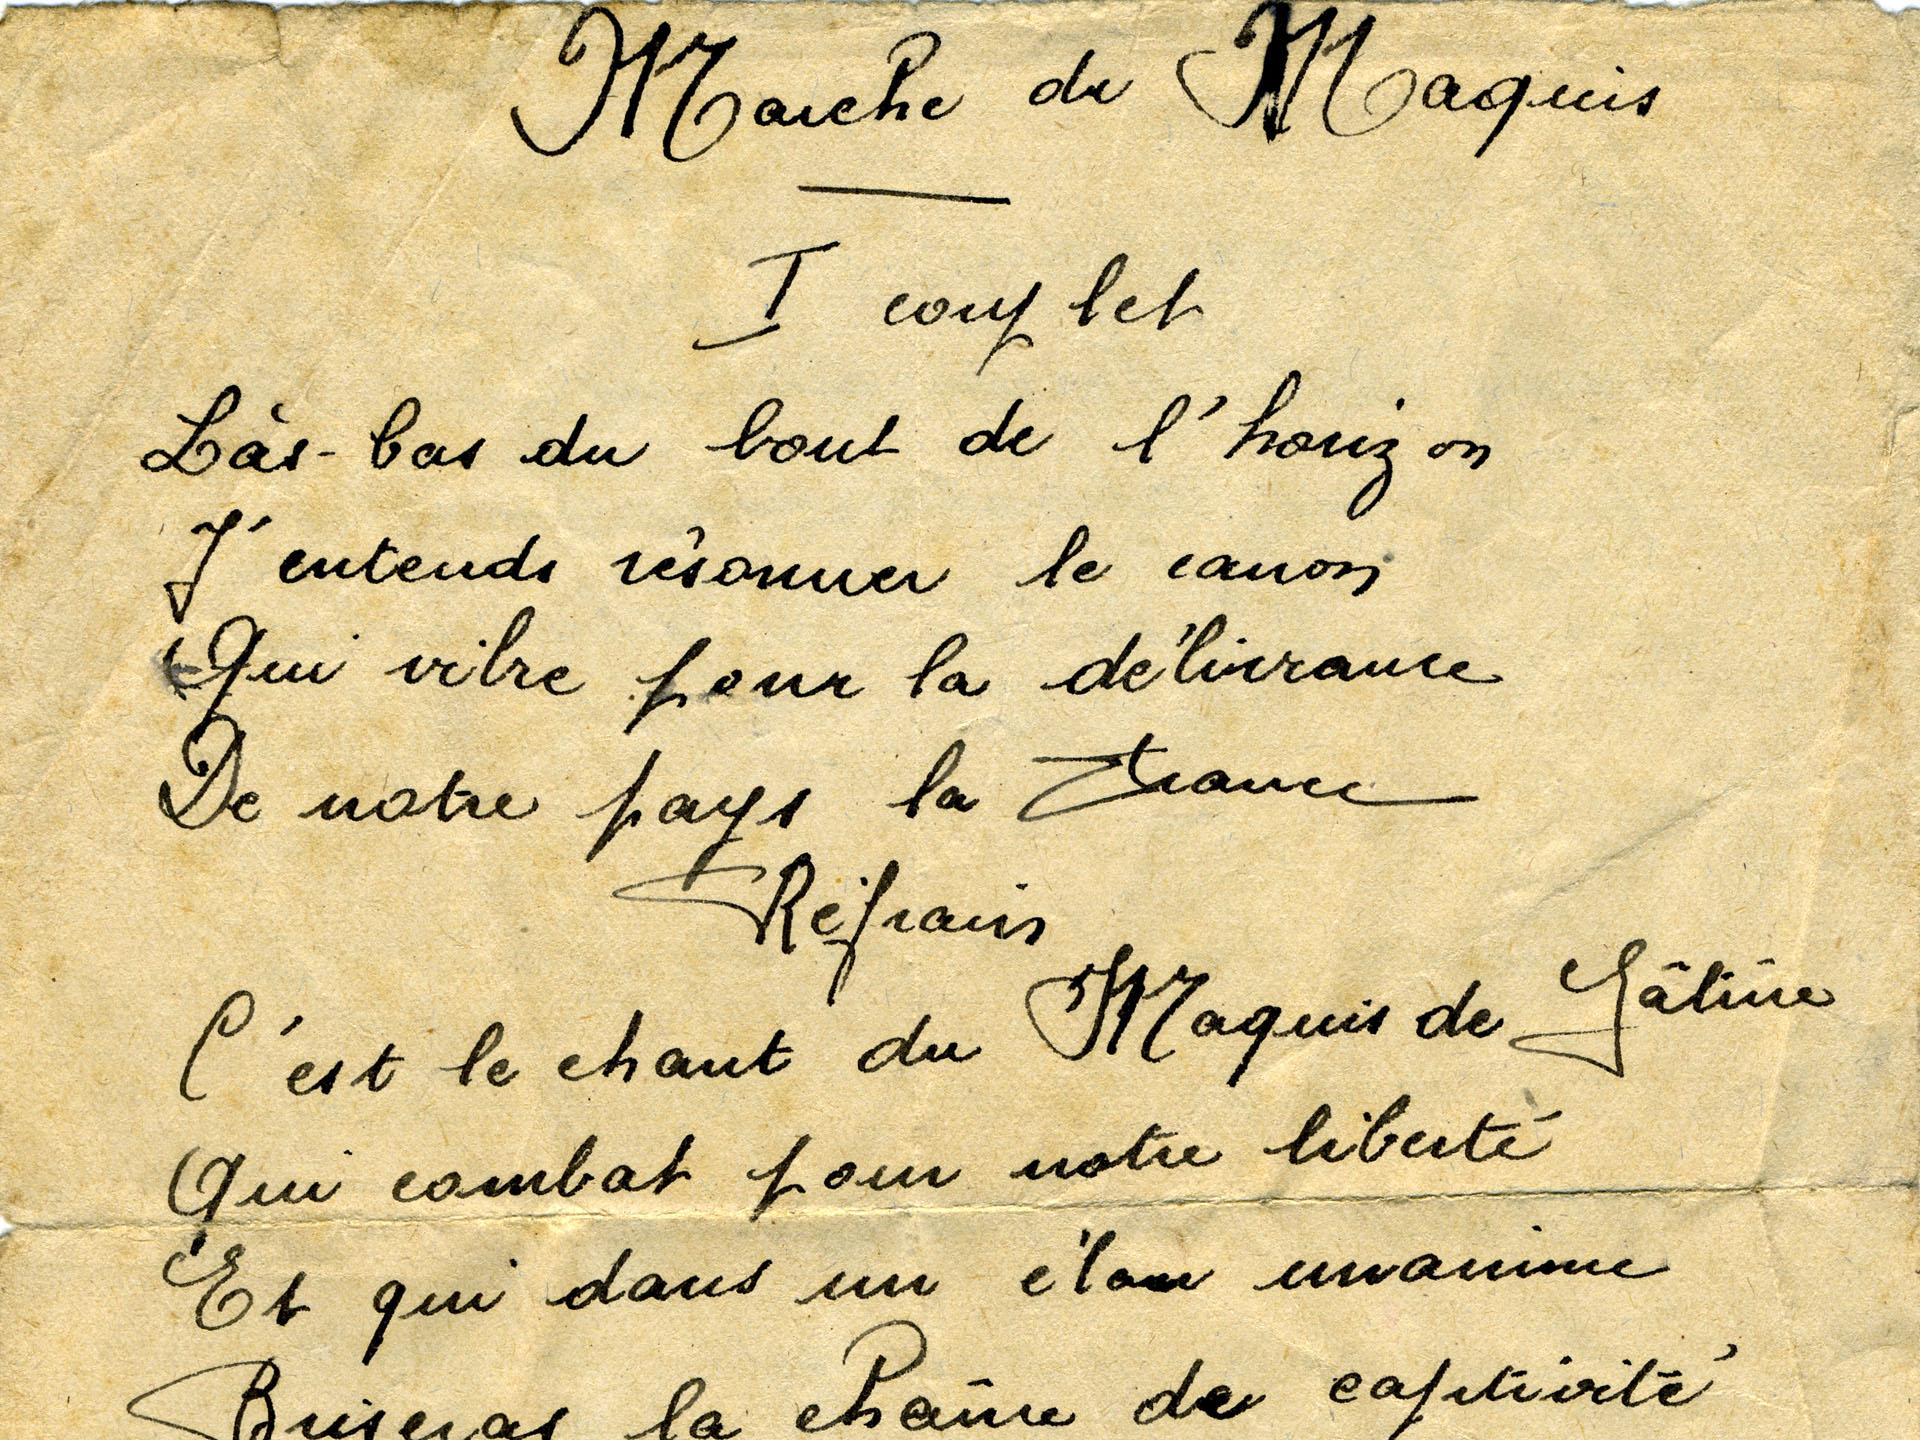 Marche du Maquis
I couplet
Làs-bas du bout de l'horizon
J'entends résonner le canon
Qui vibre pour la délivrance
De notre pays la France
Réfrain
C'est le chant du Maquis de Gâtine
Qui combat pour notre liberté
Et qui dans un élan unanime
Briseras la chaîne de captivité